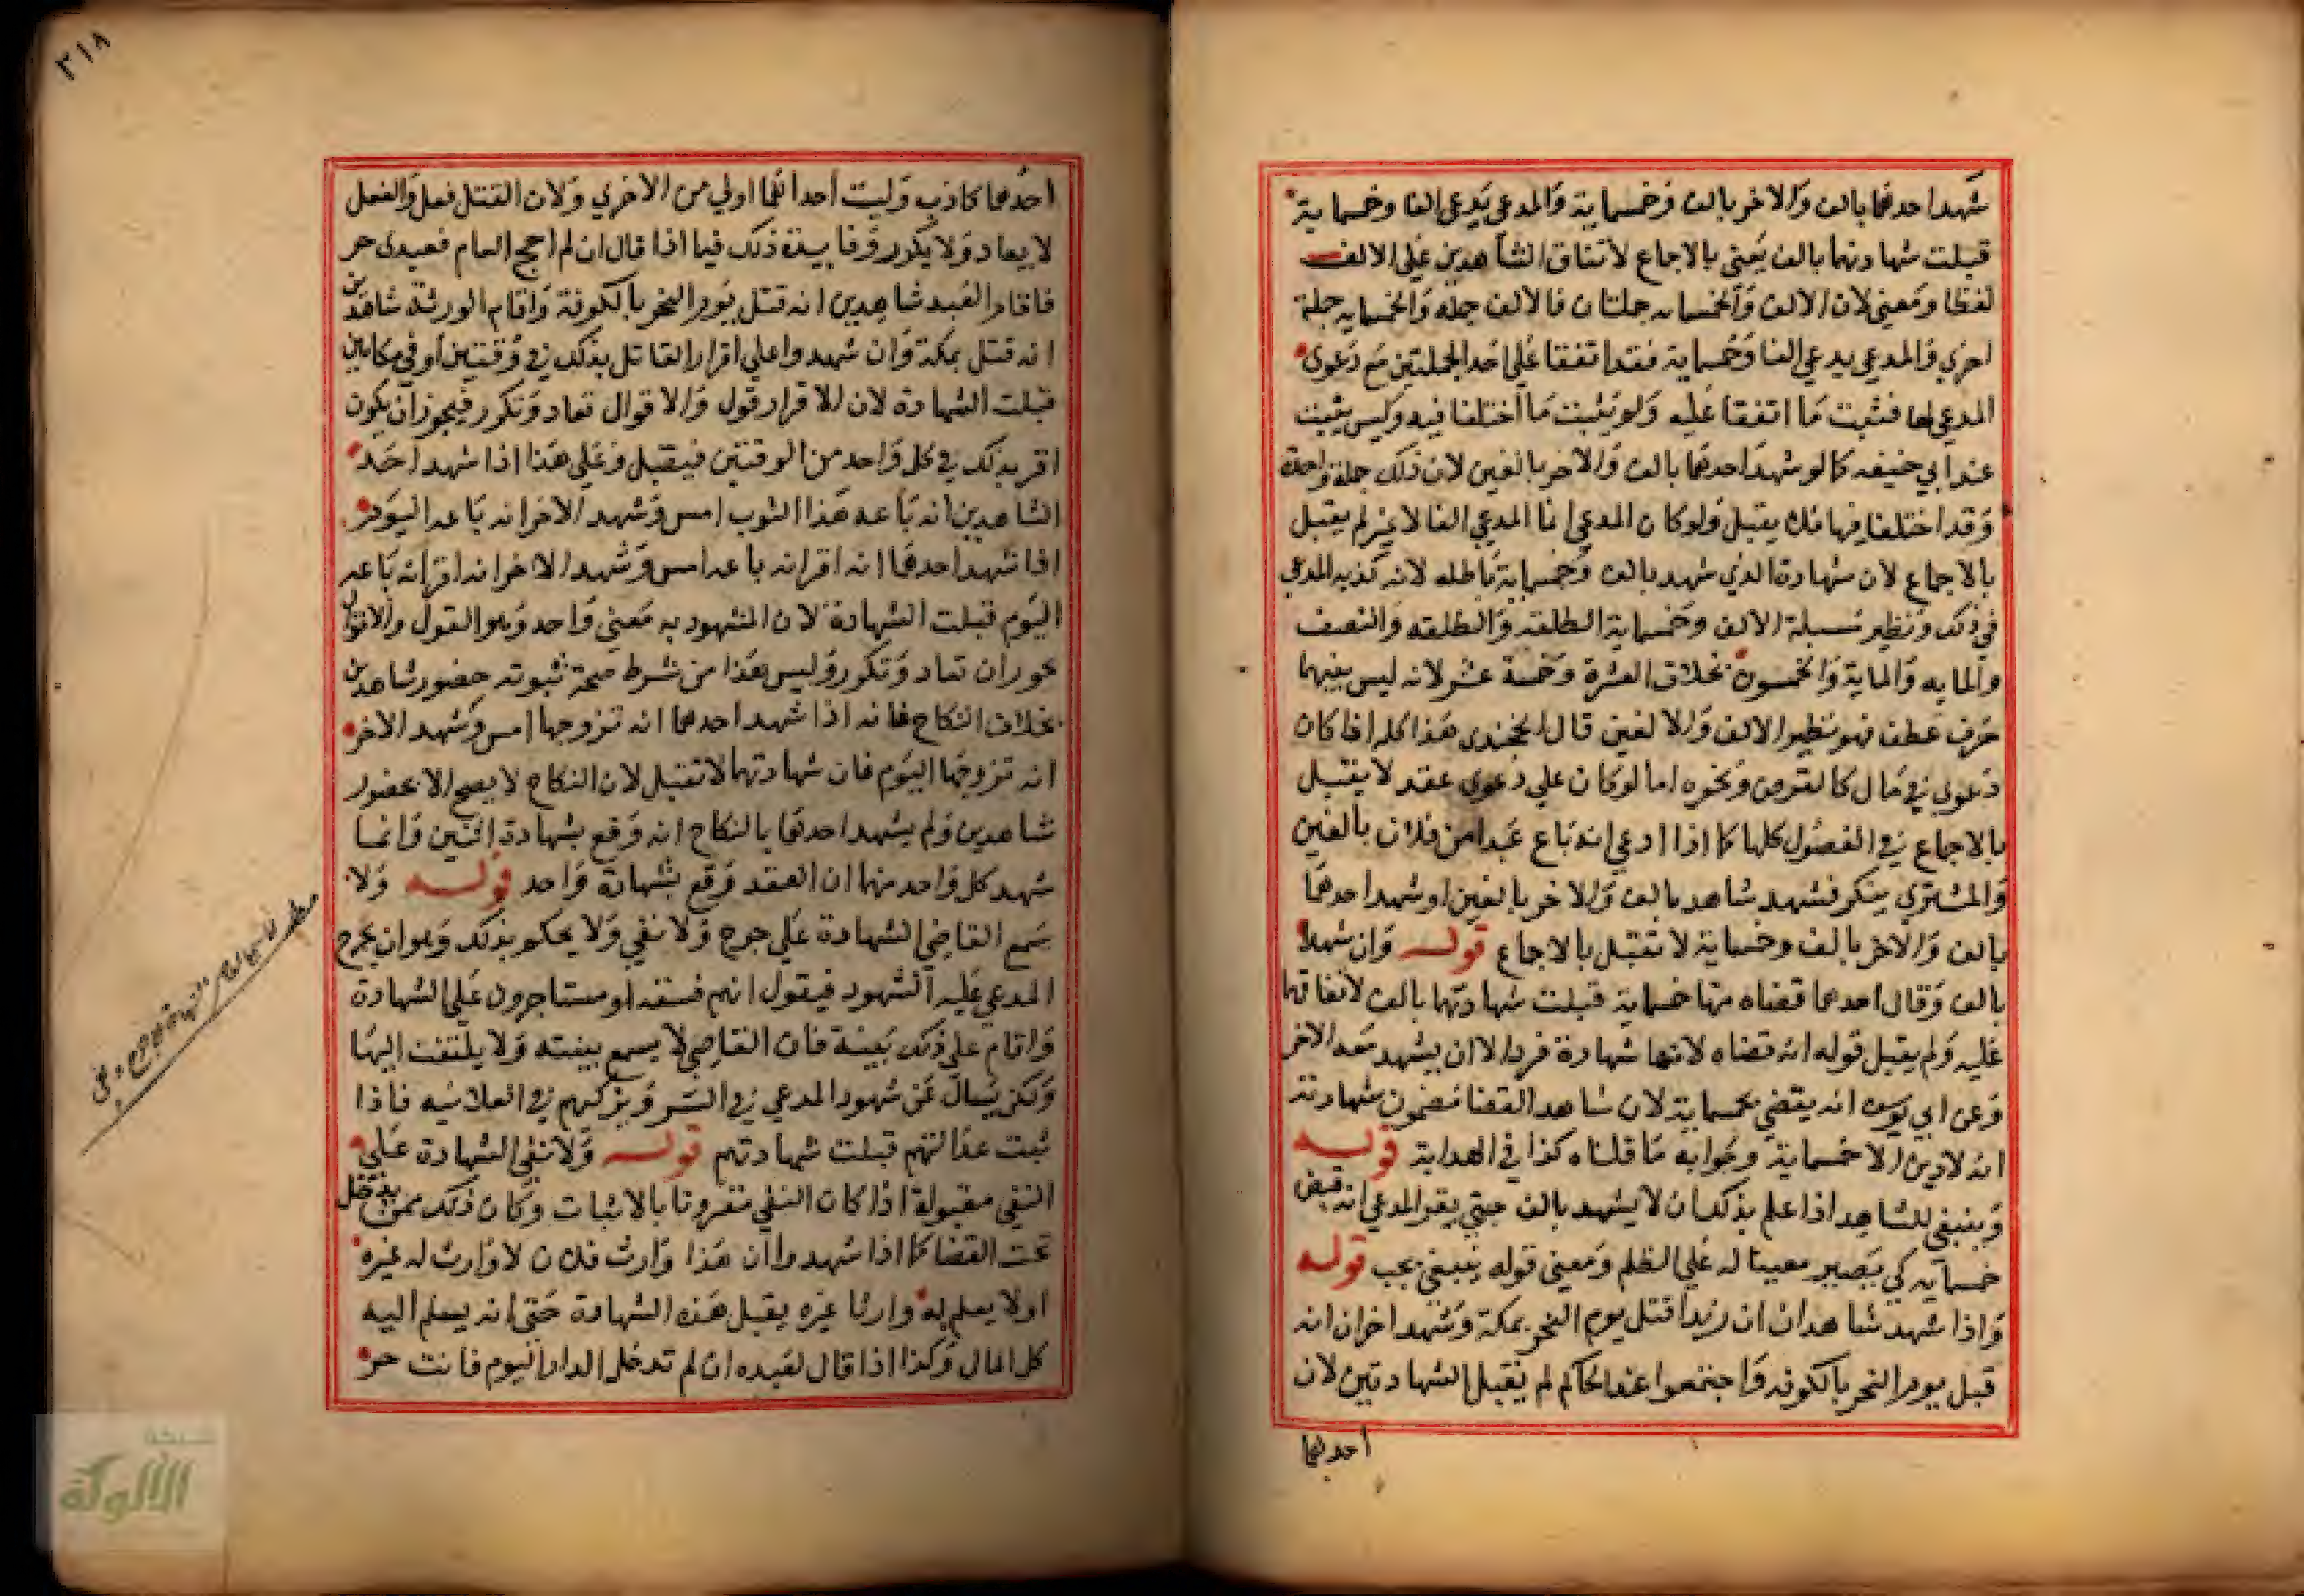 شهد احدهما بالف والاخر بالف وخمسماية والمدعي يدعي الفا وخمسماية
قبلت شهادتهما بالف يعني بالاجماع لاتفاق الشاهدين علي الالف
لفظا ومعني لان الالف والخمسمايه جملتان فالالف جمله والخمسمايه جملة
اخري والمدعي يدعي الفا وخمسماية فقد اتفقا علي احد الجملتين مع دعوي
المدعي لها فثبت ما اتفقا عليه ولم يثبت ما اختلفا فيه وليس يثبت
عند ابي حنيفه كما لو شهد احدهما بالف والاخر بالفين لان ذلك جملة واحدة
وقد اختلفا فيها فلا يقبل ولو كان المدعي انما المدعي الفا لا غير لم يقبل
بالاجماع لان شهادة الذي شهد بالف وخمسماية باطله لانه كذبه المدعي
في ذلك ونظير مسيلة الالف وخمسماية الطلقة والطلقه والنصف
والمايه والماية والخمسون بخلاف العشرة وخمسة عشر لانه ليس بينهما
حرف عطف فهو نظير الالف والالفين قال الخجندي هذا كله اذا كان
دعوي في مال كالقرض ونحوه اما لو كان علي دعوي عقد لا يقبل
بالاجماع في الفصول كلها كما اذا ادعي انه باع عبدا من فلان بالفين
والمشتري ينكر فشهد شاهد بالف والاخر بالفين او شهد احدهما
بالف والاخر بالف وخمسماية لا تقبل بالاجماع قوله وان شهدا
بالف وقال احدهما قضاه منها خمسماية قبلت شهادتهما بالف لاتفاقهما
عليه ولم يقبل قوله انه قضاه لانها شهادة فرد الا ان يشهد معه الاخر
وعن ابي يوسف انه يقضي بخمسماية لان شاهد القضا مضمون شهادته
انه لا دين الا خمسماية وجوابه ما قلناه كذا في الهداية قوله
وينبغي للشاهد اذا علم بذلك ان لا يشهد بالف حتي يقر المدعي انه قبض
خمسمايه كي يصير معينا له علي الظلم ومعني قوله ينبغي يجب قوله
واذا شهد شاهدان ان زيدا قتل يوم النحر بمكة وشهد اخران انه
قبل يوم النحر بالكوفه واجتمعوا عند الحاكم لم يقبل الشهادتين لان
احدهما
٢١٨
احدهما كاذبه وليت احداهما اولي من الاخري ولان القتل فعل والفعل
لا يعاد ولا يكرر وفايدة ذلك فيما اذا قال ان لم احج العام فعبدي حر
فاقام العبد شاهدين انه قتل يوم النحر بالكوفة واقام الورثة شاهدين
انه قتل بمكة وان شهدوا علي اقرار القاتل بذلك في وقتين او في مكانين
قبلت الشهادة لان الاقرار قول والاقوال تعاد وتكرر فيجوز ان يكون
اقر بذلك في كل واحد من الوقتين فيقبل وعلي هذا اذا شهد احد
الشاهدين انه باعه هذا الثوب امس وشهد الاخر انه باعه اليوم
اذا شهد احدهما انه اقر انه باعه امس وشهد الاخر انه اقر انه باعه
اليوم قبلت الشهادة لان المشهود به معني واحد وهو القول والاقوال
يجوز ان تعاد وتكرر وليس هذا من شرط صحة ثبوته حضور شاهدين
بخلاف النكاح فانه اذا شهد احدهما انه تزوجها امس وشهد الاخر
انه تزوجها اليوم فان شهادتهما لا تقبل لان النكاح لا يصح الا بحضور
شاهدين ولم يشهد احدهما بالنكاح انه وقع بشهادة اثنين وانما
شهد كل واحد منهما ان العقد وقع بشهادة واحد قوله ولا
يسمع القاضي الشهادة علي جرح ولا نفي ولا يحكم بذلك وهو ان يجرح
المدعي عليه الشهود فيقول انهم فسقه او مستاجرون علي الشهادة
واقام علي ذلك بينة فان القاضي لا يسمع بينته ولا يلتفت اليها
ولكن يسال عن شهود المدعي في السر ويزكيهم في العلانيه فاذا
ثبت عدالتهم قبلت شهادتهم قوله ولا نفي الشهادة علي
النفي مقبولة اذا كان النفي مقرونا بالاثبات وكان ذلك ممن يدخل
تحت القضا كما اذا شهدوا ان هذا وارث فلان لا وارث له غيره
او لا يعلم له وارثا غيره يقبل هذه الشهادة حتي انه يسلم اليه
كل المال وكذا اذا قال لعبده ان لم تدخل الدار اليوم فانت حر
شبكة
الألوكة